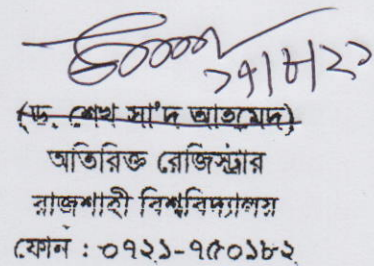 ২৭/৮/২১
(ড. শেখ সা'দ আহমেদ)
অতিরিক্ত রেজিস্ট্রার
রাজশাহী বিশ্ববিদ্যালয়
ফোন : ০৭২১-৭৫০১৮২